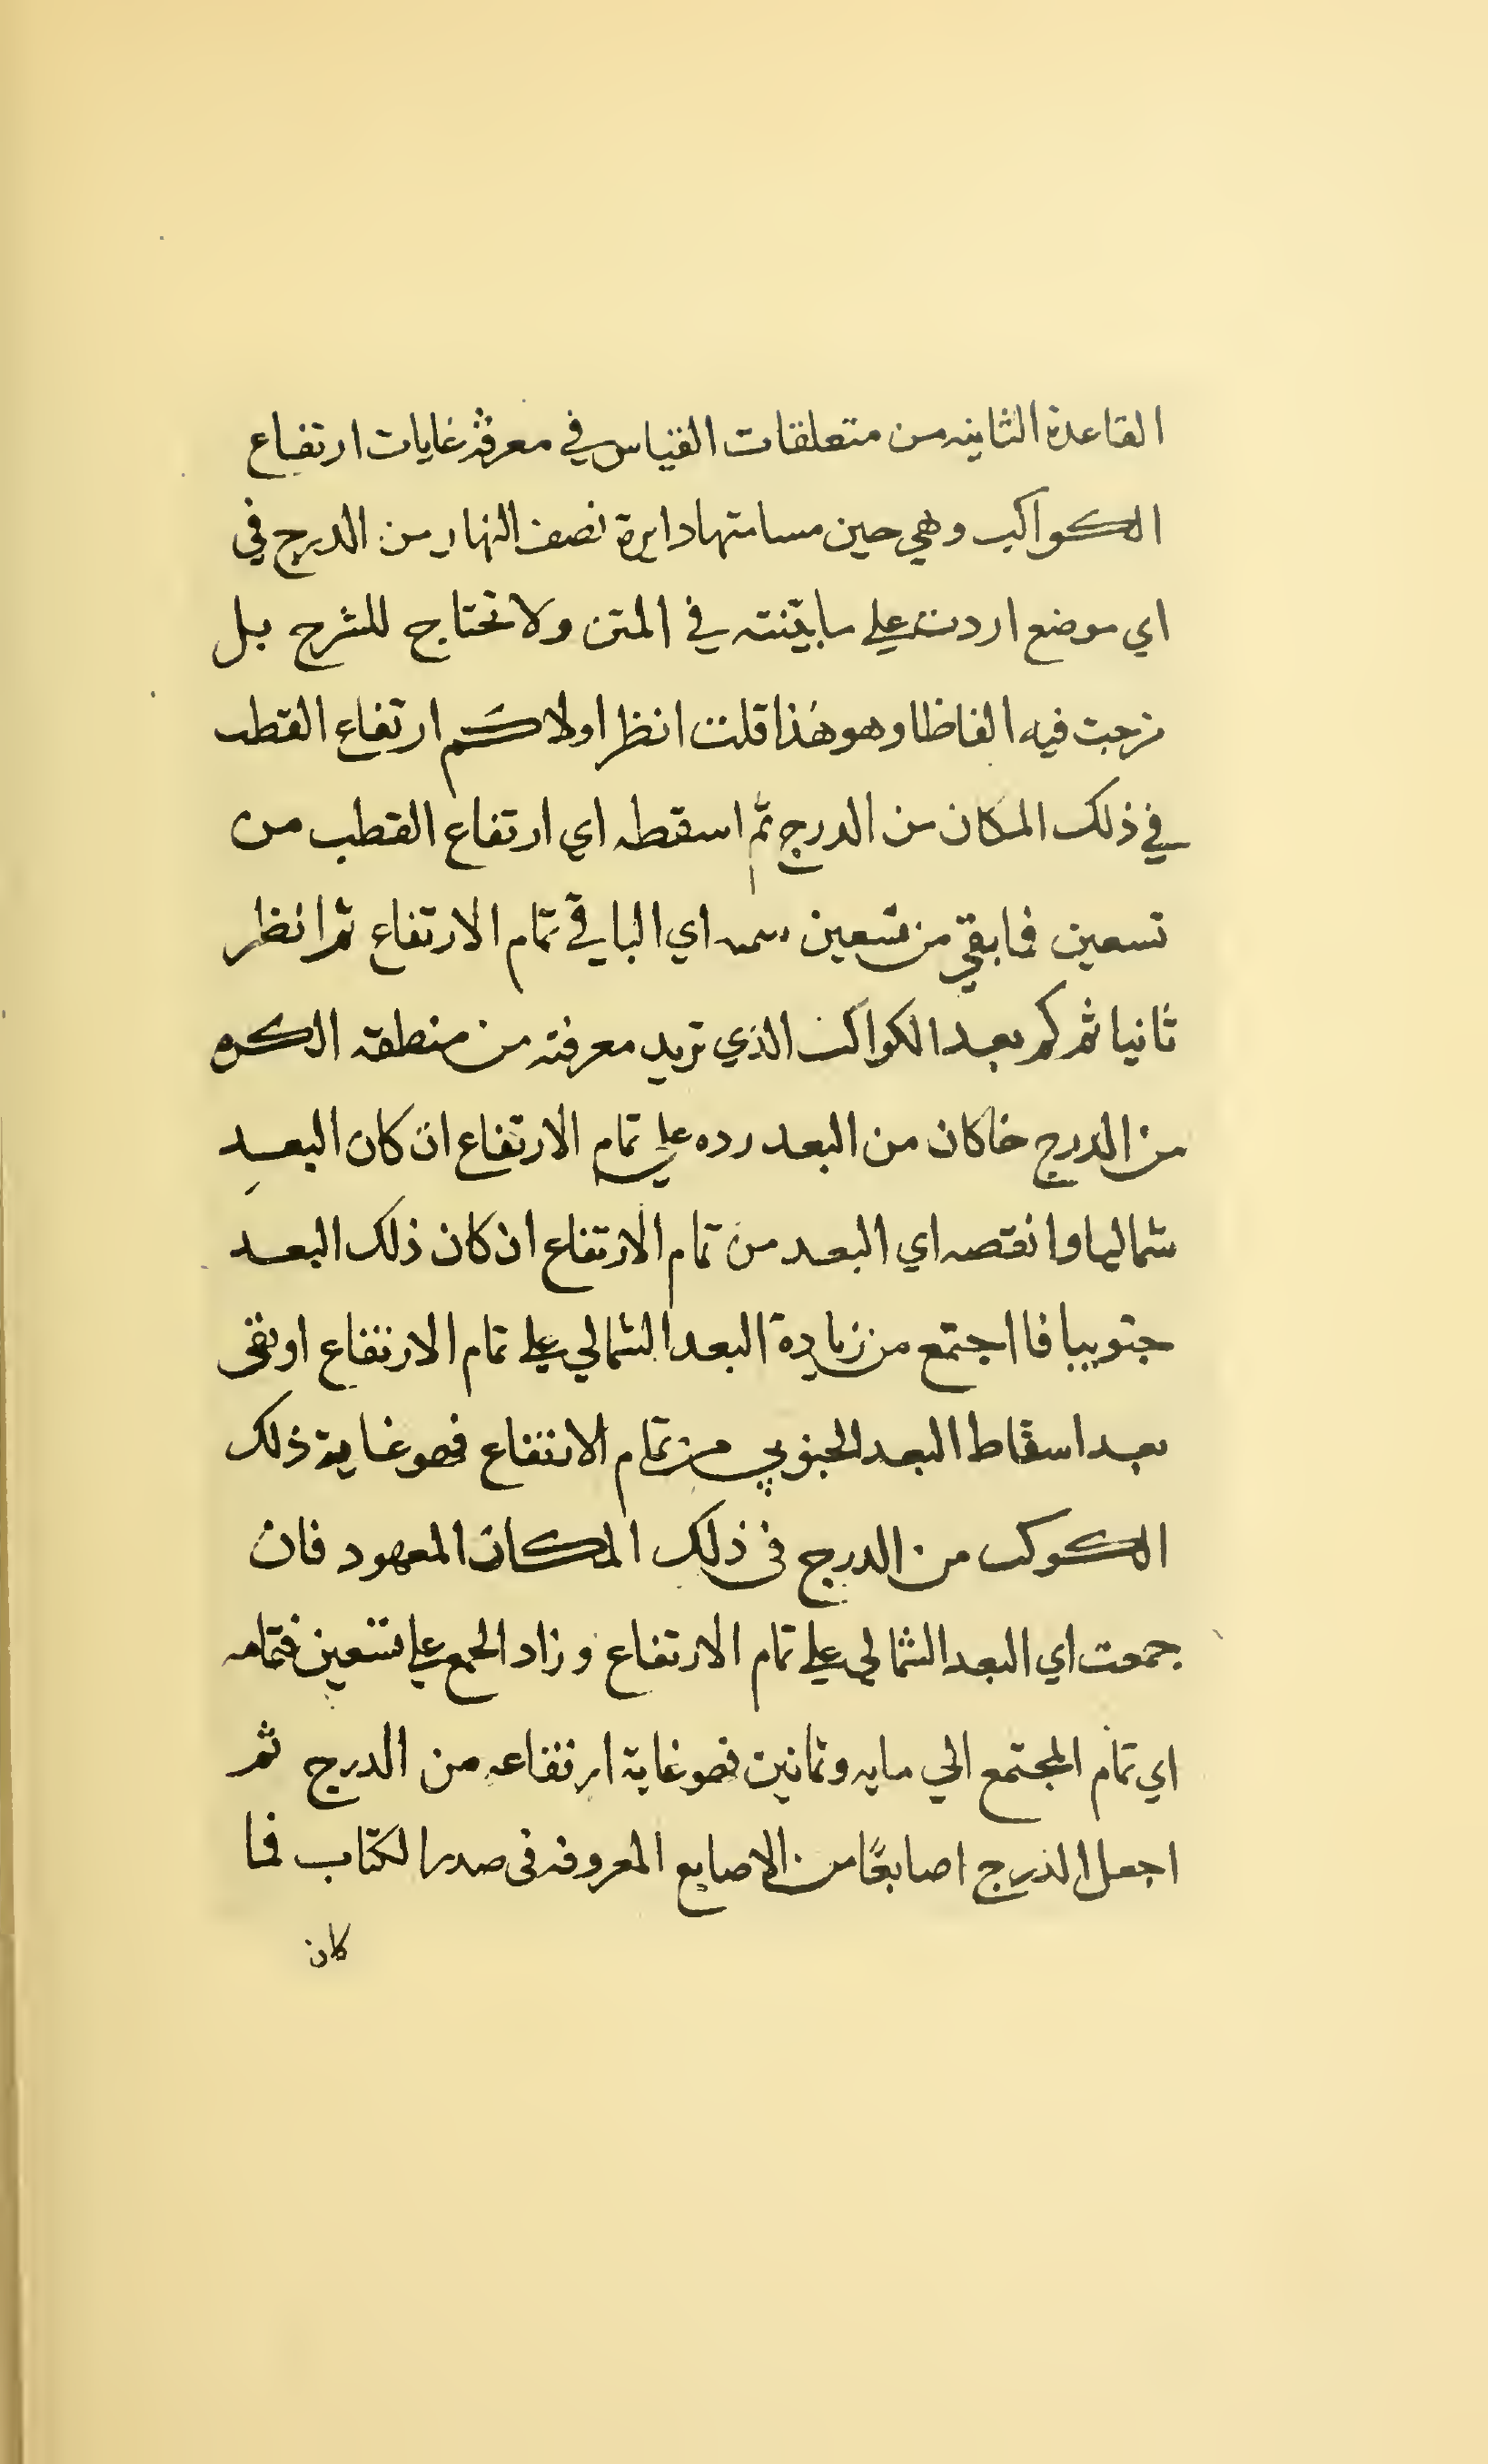 القاعدة الثانيه من متعلقات القياس في معرفة غايات ارتفاع
الكواكب وهي حين مسامتها دايرة نصف النهار من الدرج في
اي موضع اردت علي ما بيّنته في المتن ولا تحتاج للشرح بل
مزجت فيه الفاظا وهو هذا قلت انظر اولا كَم ارتفاع القطب
في ذلك المكان من الدرج ثم اسقطه اي ارتفاع القطب من
تسعين فما بقي من تسعين سمه اي الباقي تمام الارتفاع ثم انظر
ثانيا ثم كم بعد الكواكب الذي تريد معرفته من منطقه الكره
من الدرج فاكان من البعد رده علي تمام الارتفاع ان كان البعد
شماليا وانقصه اي البعد من تمام الارتفاع ان كان ذلك البعد
جنوبيا فا اجتمع من زيادة البعد الشمالي علي تمام الارتفاع او بقي
بعد اسقاط البعد الجنوبي من تمام الارتفاع فهو غاية ذلك
الكوكب من الدرج في ذلك المكان المعهود فان
جمعت اي البعد الشمالي علي تمام الارتفاع وزاد الجمع علي تسعين فتمامه
اي تمام المجتمع الي مايه وثمانين فهو غاية ارتفاعه من الدرج ثم
اجعل الدرج اصابعًا من الاصابع المعروفه في صدر الكتاب فما
كان